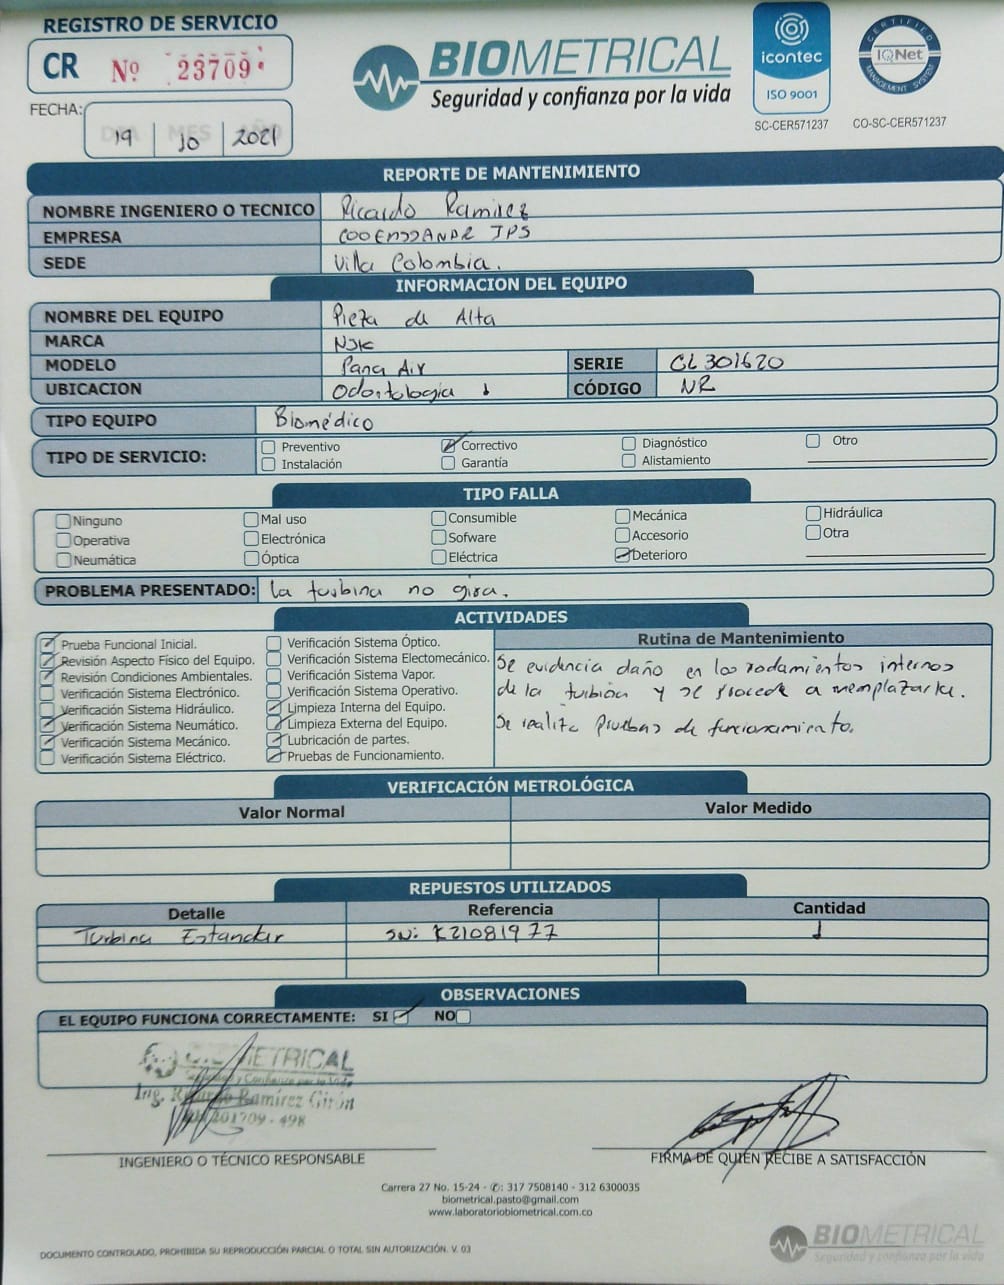 REGISTRO DE SERVICIO
CR Nº 23709
FECHA:
DIA MES AÑO
19 10 2021
BIOMETRICAL
Seguridad y confianza por la vida
icontec
ISO 9001
SC-CER571237
CERTIFIED
IQNet
MANAGEMENT SYSTEM
CO-SC-CER571237
REPORTE DE MANTENIMIENTO
NOMBRE INGENIERO O TECNICO Ricardo Ramirez
EMPRESA IPS
SEDE Villa Colombia.
INFORMACION DEL EQUIPO
NOMBRE DEL EQUIPO Pieza de Alta
MARCA NSK
MODELO Pana Air SERIE CL301620
UBICACION Odontologia 1 CÓDIGO NR
TIPO EQUIPO Biomédico
TIPO DE SERVICIO: Preventivo Correctivo Diagnóstico Otro
Instalación Garantía Alistamiento
TIPO FALLA
Ninguno Mal uso Consumible Mecánica Hidráulica
Operativa Electrónica Sofware Accesorio Otra
Neumática Óptica Eléctrica Deterioro
PROBLEMA PRESENTADO: la turbina no gira.
ACTIVIDADES
Prueba Funcional Inicial.
Revisión Aspecto Físico del Equipo.
Revisión Condiciones Ambientales.
Verificación Sistema Electrónico.
Verificación Sistema Hidráulico.
Verificación Sistema Neumático.
Verificación Sistema Mecánico.
Verificación Sistema Eléctrico.
Verificación Sistema Óptico.
Verificación Sistema Electomecánico.
Verificación Sistema Vapor.
Verificación Sistema Operativo.
Limpieza Interna del Equipo.
Limpieza Externa del Equipo.
Lubricación de partes.
Pruebas de Funcionamiento.
Rutina de Mantenimiento
Se evidencia daño en los rodamientos internos
de la turbina y se procede a remplazarla.
Se realiza pruebas de funcionamiento.
VERIFICACIÓN METROLÓGICA
Valor Normal Valor Medido
REPUESTOS UTILIZADOS
Detalle Referencia Cantidad
Turbina Estandar SN: K21081977 1
OBSERVACIONES
EL EQUIPO FUNCIONA CORRECTAMENTE: SI NO
BIOMETRICAL
Seguridad y Confianza por la Vida
Ing. Ricardo Ramírez Girón
201709 - 498
INGENIERO O TÉCNICO RESPONSABLE
FIRMA DE QUIEN RECIBE A SATISFACCIÓN
Carrera 27 No. 15-24 - ✆: 317 7508140 - 312 6300035
biometrical.pasto@gmail.com
www.laboratoriobiometrical.com.co
DOCUMENTO CONTROLADO, PROHIBIDA SU REPRODUCCIÓN PARCIAL O TOTAL SIN AUTORIZACIÓN. V. 03
BIOMETRICAL
Seguridad y confianza por la vida